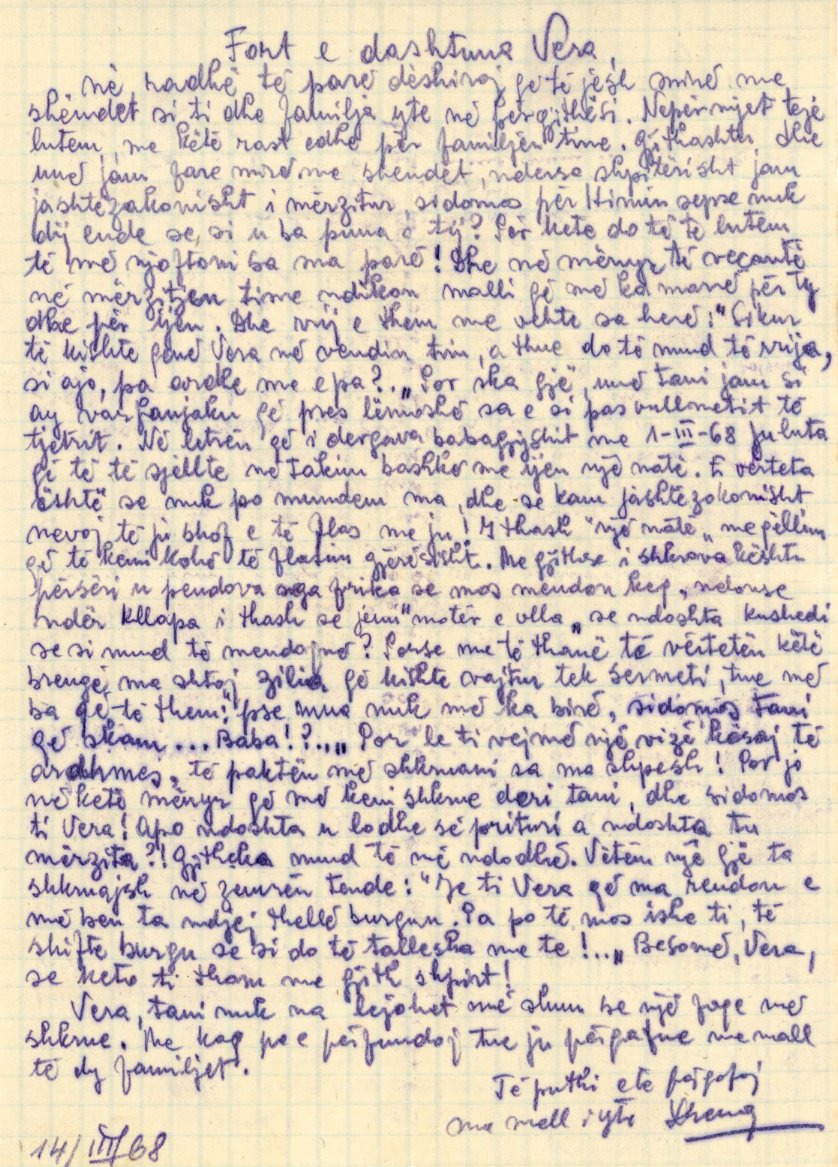 Fort e dashtuna Vera,
në radhë të parë dëshiroj që të jesh mirë me
shëndet si ti dhe familja yte në përgjithësi. Nëpërmjet tejë
lutem, me këtë rast edhe për familjën time. Gjithashtu dhe
unë jam fare mirë me shëndet, ndërsa shpitërisht jam
jashtëzakonisht i mërzitur, sidomos për Himin sepse nuk
dij ende se, si u ba puna e tij? Për kete do të të lutem
të më njoftoni sa ma parë! Dhe në mënyr të veçantë
në mërzitjen time ndikon malli që më ka marë për ty
dhe për Iljen. Dhe vrij e them me vehte sa herë: "Sikur
të kishte qenë Vera në vendin tim, a thue do të mund të rrija,
si ajo, pa ardhë me e pa?.„ Por ska gjë, unë tani jam si
ay varfanjaku që pres lëmoshë sa e si pas vullnetit të
tjetrit. Në letrën që i dergava babagjyshit me 1-III-68 ju luta
që të të sjellte në takim bashkë me Iljen një natë. E vërteta
është se nuk po mundem ma, dhe se kam jashtëzakonisht
nevoj të ju shof e të flas me ju! I thash "një natë„ me qëllim
që të kemi kohë të flasim gjërësisht. Me gjithse i shkrova kështu
përsëri u pendova nga frika se mos mendon keq, ndonse
ndër kllapa i thash se jemi "motër e vlla„ se ndoshta kushedi
se si mund të mendojnë? Porse me të thanë të vërtetën këtë
brengë ma shtoj zilia që kishte vajtur tek Sermeti, tue më
ba që të them: "pse mua nuk më ka birë, sidomos tani
që skam... Baba!?...„ Por le ti vejmë një vizë kësaj të
ardhmes, të paktën më shkruani sa ma shpesh! Por jo
në këtë mënyr që më keni shkrue deri tani, dhe sidomos
ti Vera! Apo ndoshta u lodhe së prituri a ndoshta tu
mërzita?! Gjitheka mund të më ndodhë. Vetëm një gjë ta
shkruajsh në zemrën tende: "Je ti Vera që ma rendon e
më ben ta ndjej thellë burgun. Pa po të mos ishe ti, të
shifte burgu se si do të tallesha me te!..„ Besomë, Vera,
se keto ti tham me gjith shpirt!
Vera, tani nuk na lejohet më shum se një faqe me
shkrue. Me kaq po e përfundoj tue ju përqafue me mall
të dy familjet.
Të puthi e të përqafoj
me mall i yti
14/III/68